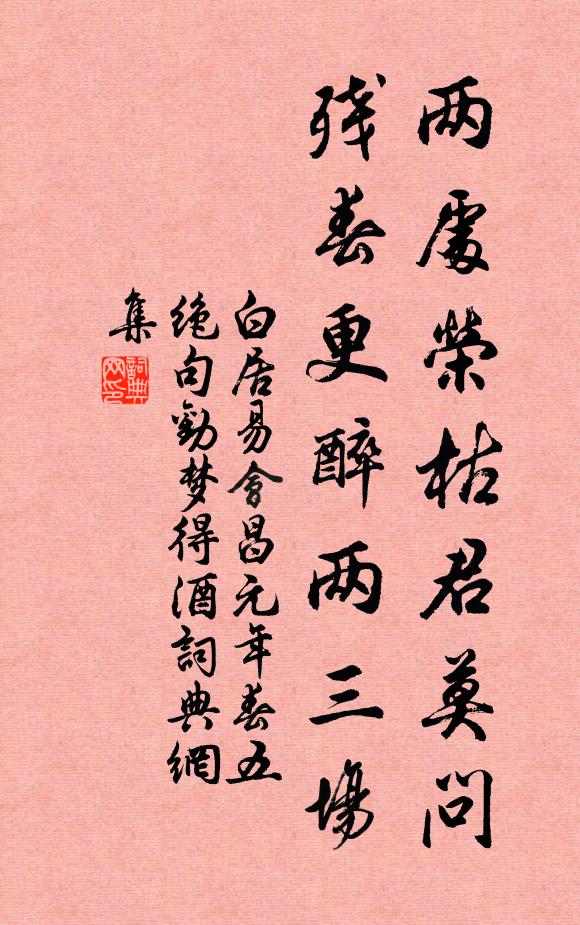 两處榮枯君莫问
残春更醉两三場
白居易會昌元年春五
绝句勸梦得酒詞典網
集
詞典
网印